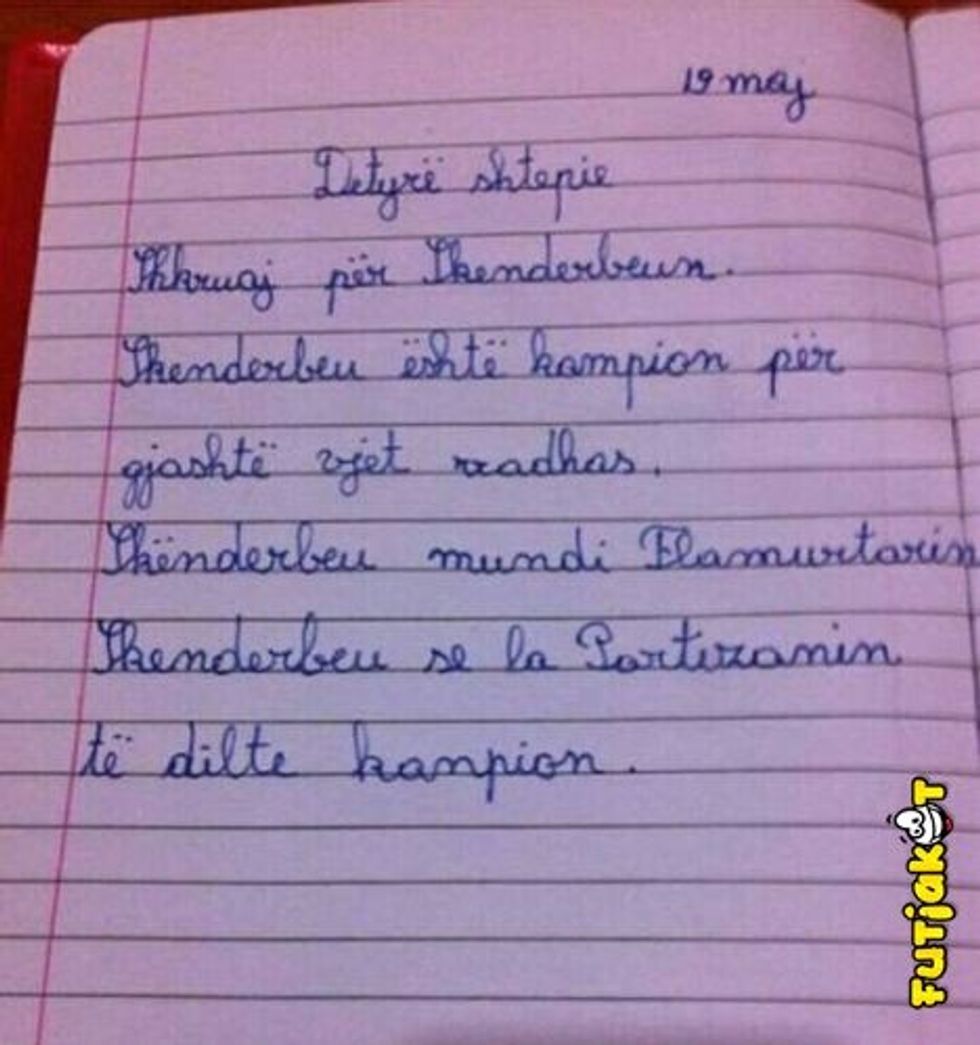 19 maj
Detyrë shtepie
Shkruaj për Skenderbeun.
Skenderbeu është kampion për
gjashtë vjet rradhas.
Skënderbeu mundi Flamurtarin
Skenderbeu se la Partizanin
të dilte kanpion.
FUTJAKOT